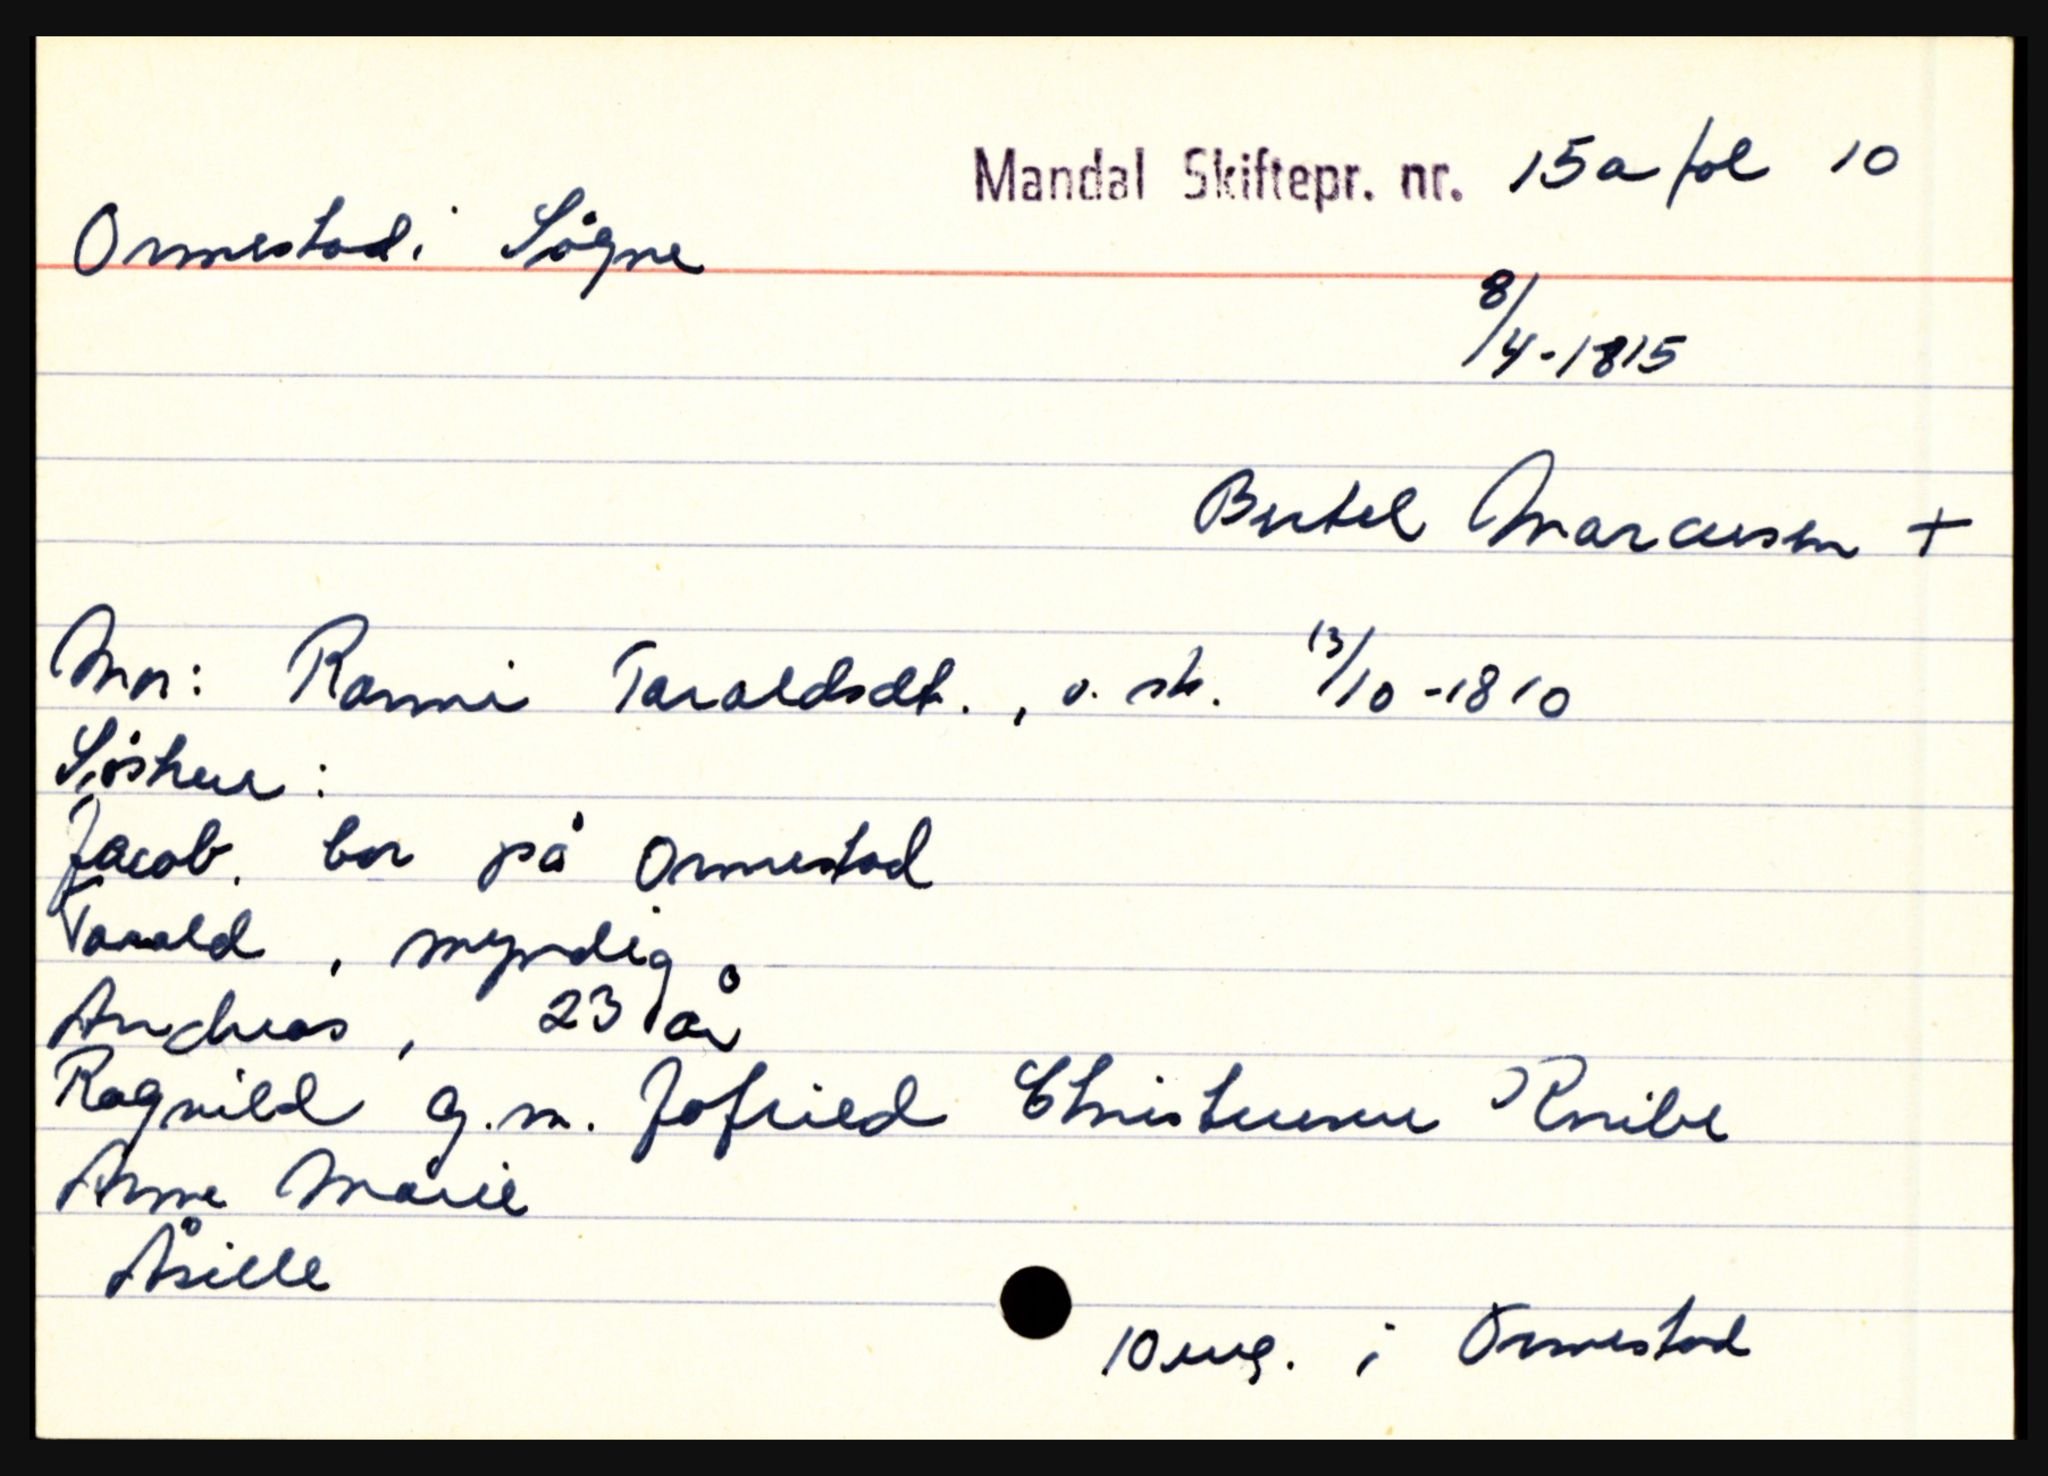 Mandal Skiftepr. nr. 15a fol 10
Ormestad i Søgne
8/4-1815
Bertel Marcussen +
Mor: Ranni Taraldsdt., v. sk. 13/10-1810
Søsken:
Jacob, bor på Ormestad
Tarald, myndig
Andreas, 23 år
Ragnild g.m. Jofried Christensen Knibe
Anne Marie
Åsille
10 eng. i Ormestad